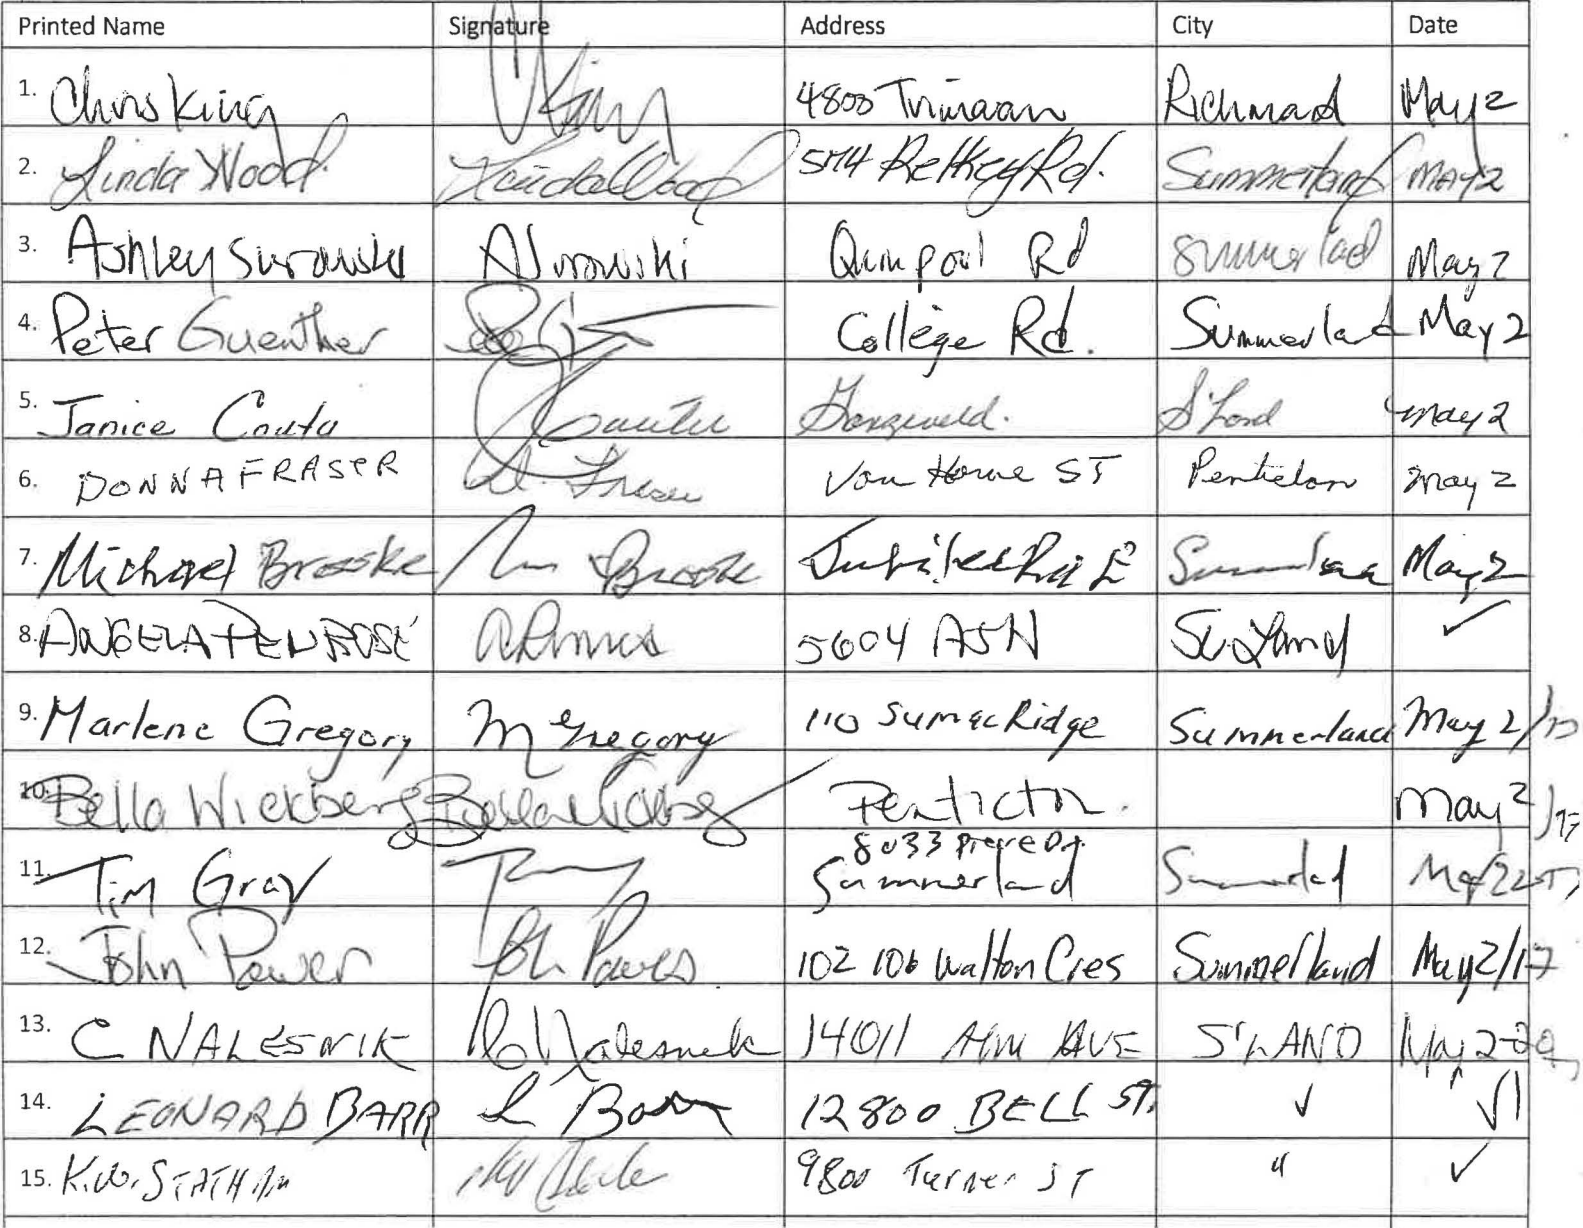 Printed Name Signature Address City Date
1. Chris King King 4800 Trimaran Richmond May 2
2. Linda Wood Linda Wood 5714 Rd. Summerland MAY 2
3. Ashley Surowski ASurowski Quinpool Rd Summerlad May 2
4. Peter Guenther College Rd. Summerland May 2
5. Janice S'Land May 2
6. DONNA FRASER D. Fraser Van Horne ST Penticton May 2
7. Michael Brooke Brooke Jubilee Rd E May 2
8. ANGELA PENROSE 5604 ASH ✓
9. Marlene Gregory M Gregory 110 Sumac Ridge Summerland May 2/17
10. Bella Wickberg Bella Wickberg Penticton. May 2/17
8033
11. Tim Gray Summerland
12. John Power John Power 102 106 Walton Cres Summerland May 2/17
13. C NALESNIK C Nalesnik 14011 AVE S'LAND May 2
14. LEONARD BARR L Barr 12800 BELL ST. ✓ ✓
15. K.W. STATHAM 9800 Turner ST " ✓